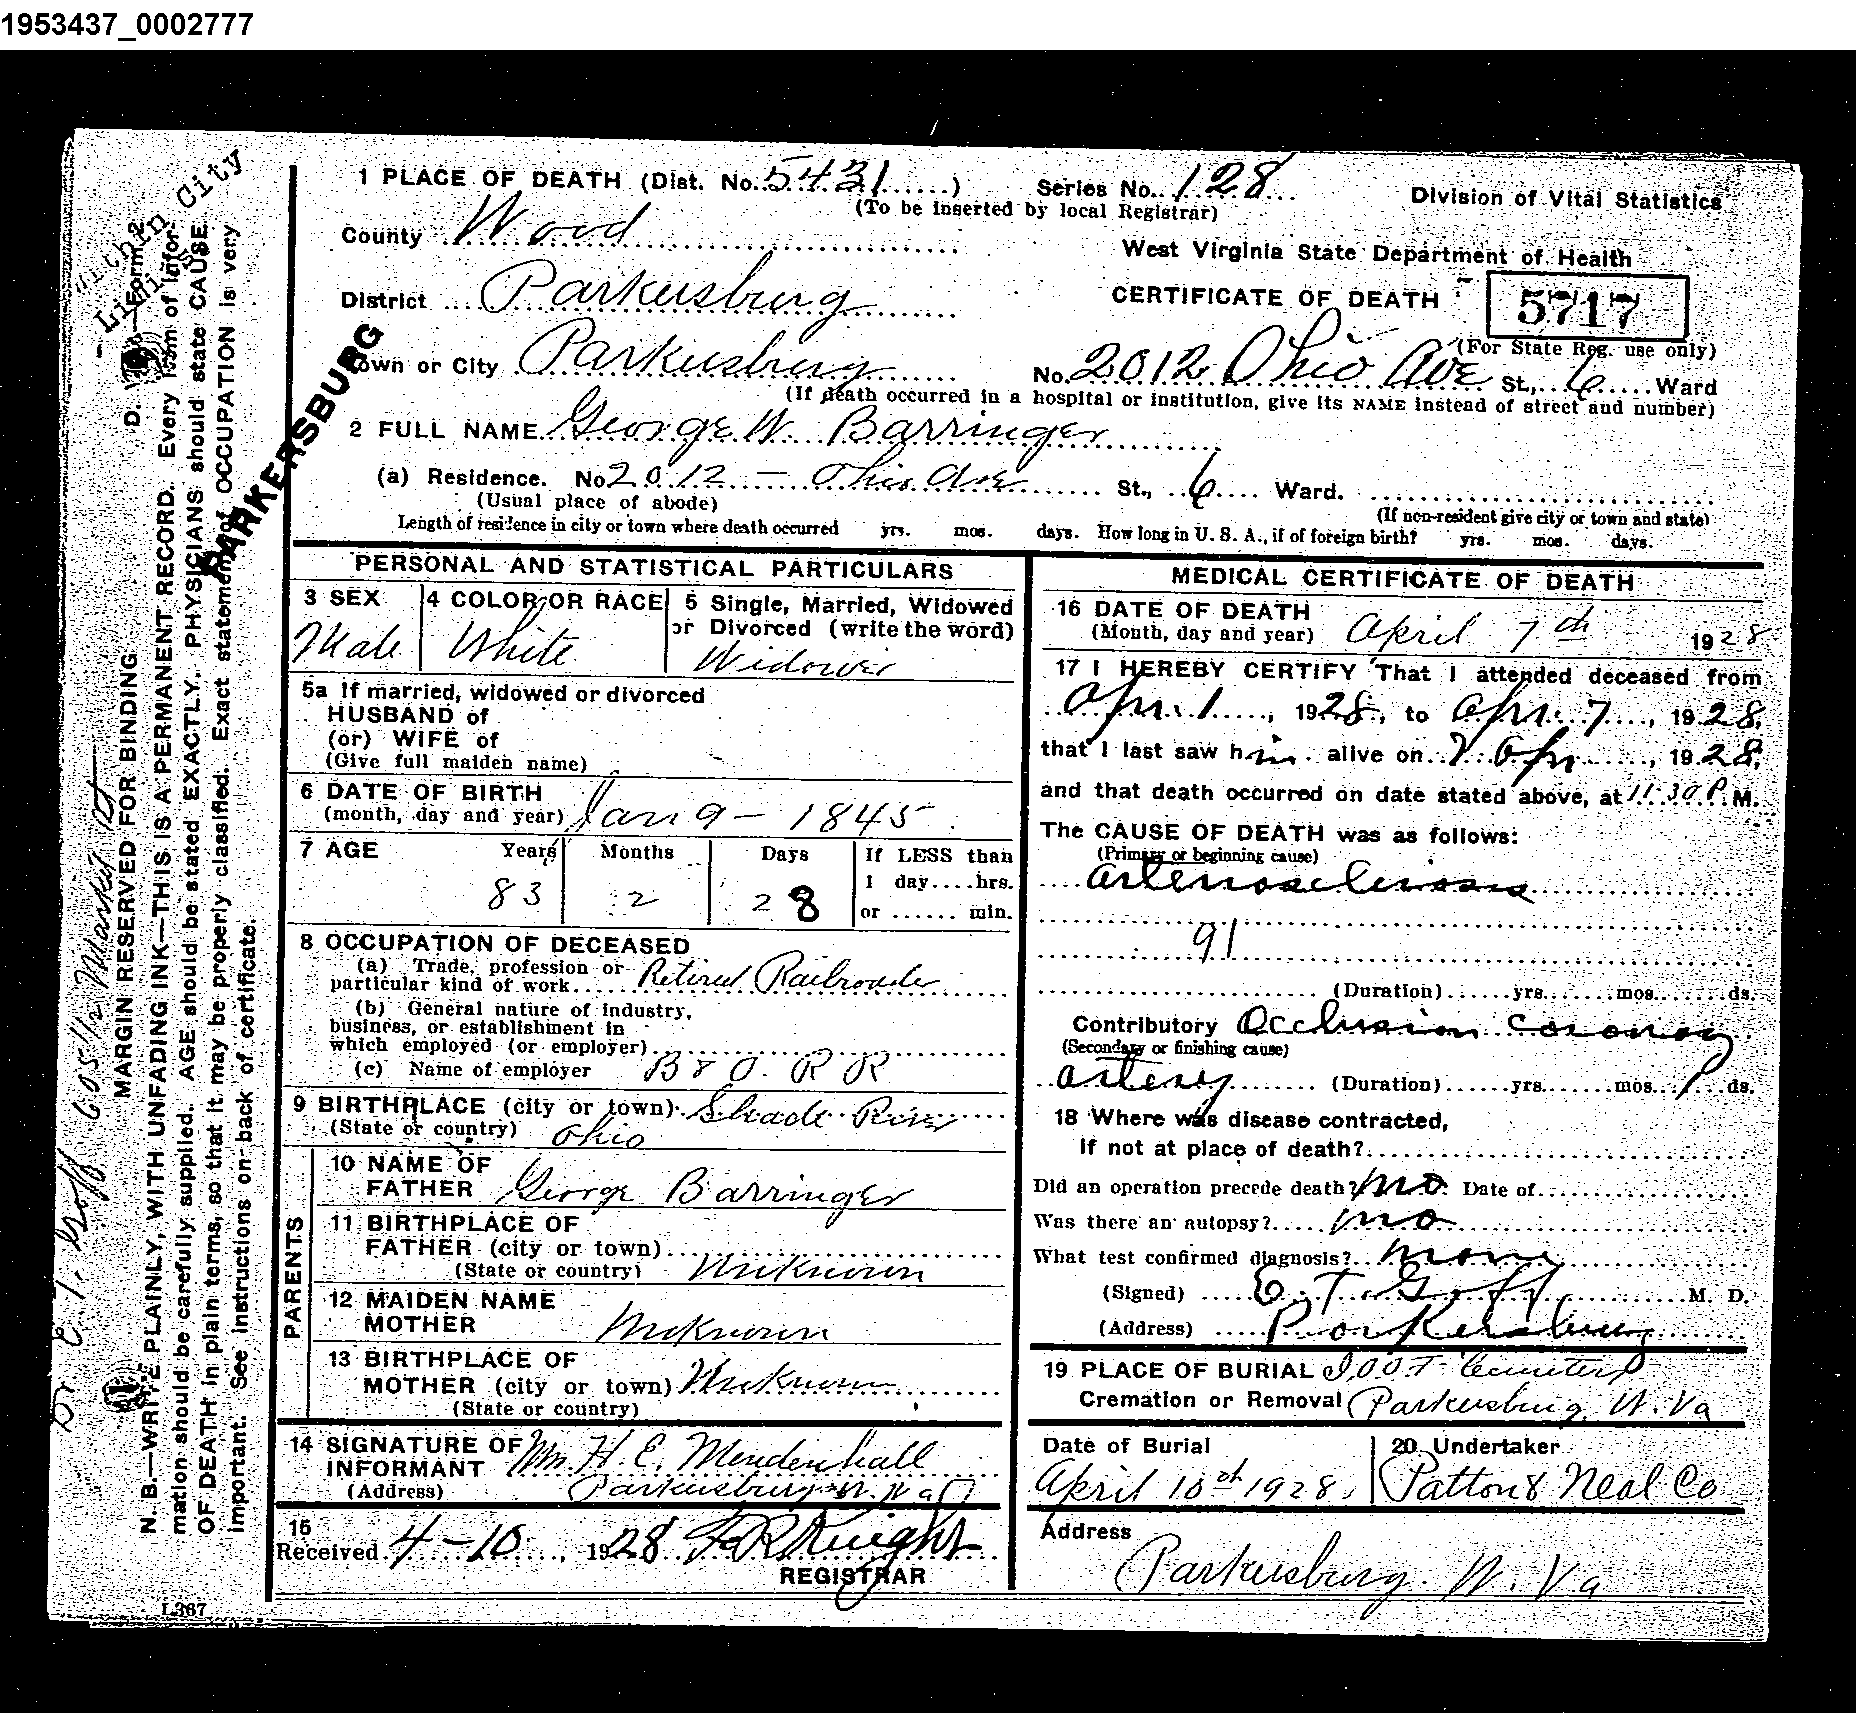 1953437_0002777
1 PLACE OF DEATH (Dist. No. 5431) Series No. 128 Division of Vital Statistics
(To be inserted by local Registrar)
County Wood
West Virginia State Department of Health
District Parkersburg
CERTIFICATE OF DEATH 5717
(For State Reg. use only)
Town or City Parkersburg No. 2012 Ohio Ave St., 6 Ward
(If death occurred in a hospital or institution, give its NAME instead of street and number)
2 FULL NAME George W. Barringer
(a) Residence. No 2012 - Ohio Ave St., 6 Ward.
(Usual place of abode) (If non-resident give city or town and state)
Length of residence in city or town where death occurred yrs. mos. days. How long in U. S. A., if of foreign birth? yrs. mos. days.
PERSONAL AND STATISTICAL PARTICULARS
3 SEX 4 COLOR OR RACE 5 Single, Married, Widowed
or Divorced (write the word)
Male White Widower
5a If married, widowed or divorced
HUSBAND of
(or) WIFE of
(Give full maiden name)
6 DATE OF BIRTH
(month, day and year) Jan 9 - 1845
7 AGE Years Months Days If LESS than
1 day....hrs.
83 2 28 or ...... min.
8 OCCUPATION OF DECEASED
(a) Trade, profession or
particular kind of work Retired Railroader
(b) General nature of industry,
business, or establishment in
which employed (or employer)
(c) Name of employer B & O. R R
9 BIRTHPLACE (city or town) Shade River
(State or country) Ohio
PARENTS
10 NAME OF
FATHER George Barringer
11 BIRTHPLACE OF
FATHER (city or town)
(State or country) Unknown
12 MAIDEN NAME
MOTHER Unknown
13 BIRTHPLACE OF
MOTHER (city or town) Unknown
(State or country)
14 SIGNATURE OF
INFORMANT H. E. Mendenhall
(Address) Parkersburg W. Va
15
Received 4-10, 1928
REGISTRAR
L367
MEDICAL CERTIFICATE OF DEATH
16 DATE OF DEATH
(Month, day and year) April 7th 1928
17 I HEREBY CERTIFY That I attended deceased from
Apr. 1, 1928, to Apr. 7, 1928,
that I last saw him alive on 7 Apr, 1928,
and that death occurred on date stated above, at 11:30 P. M.
The CAUSE OF DEATH was as follows:
(Primary or beginning cause)
Arteriosclerosis
91
(Duration)......yrs.......mos.......ds.
Contributory Occlusion coronary
(Secondary or finishing cause)
artery (Duration)......yrs.......mos. 1 ds.
18 Where was disease contracted,
if not at place of death?
Did an operation precede death? no. Date of
Was there an autopsy? no
What test confirmed diagnosis? none
(Signed) E. T. Goff M. D.
(Address) Parkersburg
19 PLACE OF BURIAL I.O.O.F Cemetery
Cremation or Removal Parkersburg, W. Va
Date of Burial 20 Undertaker
April 10th 1928. Patton & Neal Co
Address
Parkersburg. W. Va
PARKERSBURG
Within City
Limits
Form 2 D.
MARGIN RESERVED FOR BINDING
N. B.—WRITE PLAINLY, WITH UNFADING INK—THIS IS A PERMANENT RECORD. Every item of infor-
mation should be carefully supplied. AGE should be stated EXACTLY. PHYSICIANS should state CAUSE
OF DEATH in plain terms, so that it may be properly classified. Exact statement of OCCUPATION is very
important. See instructions on back of certificate.
Dr E. T. Goff 605½ Market St